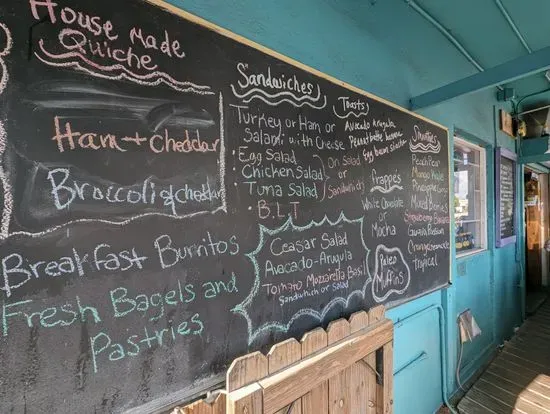 House Made
Quiche
Ham + Cheddar
Broccoli & cheddar
Breakfast Burritos
Fresh Bagels and
Pastries
Sandwiches
Turkey or Ham or
Salami with Cheese
Egg Salad
Chicken Salad
Tuna Salad
On Salad
or
Sandwich
B.L.T
Ceasar Salad
Avocado-Arugula
Tomato Mozzarella Basil
Sandwich or salad
Toasts
Avocado Arugula
Peanut butter banana
Egg bacon
frappe's
White Chocolate
or
Mocha
Paleo
Muffins
Smoothies
Peach Pear
Mango
Pineapple
Mixed Berries
Strawberry Banana
Guava Passion
Tropical